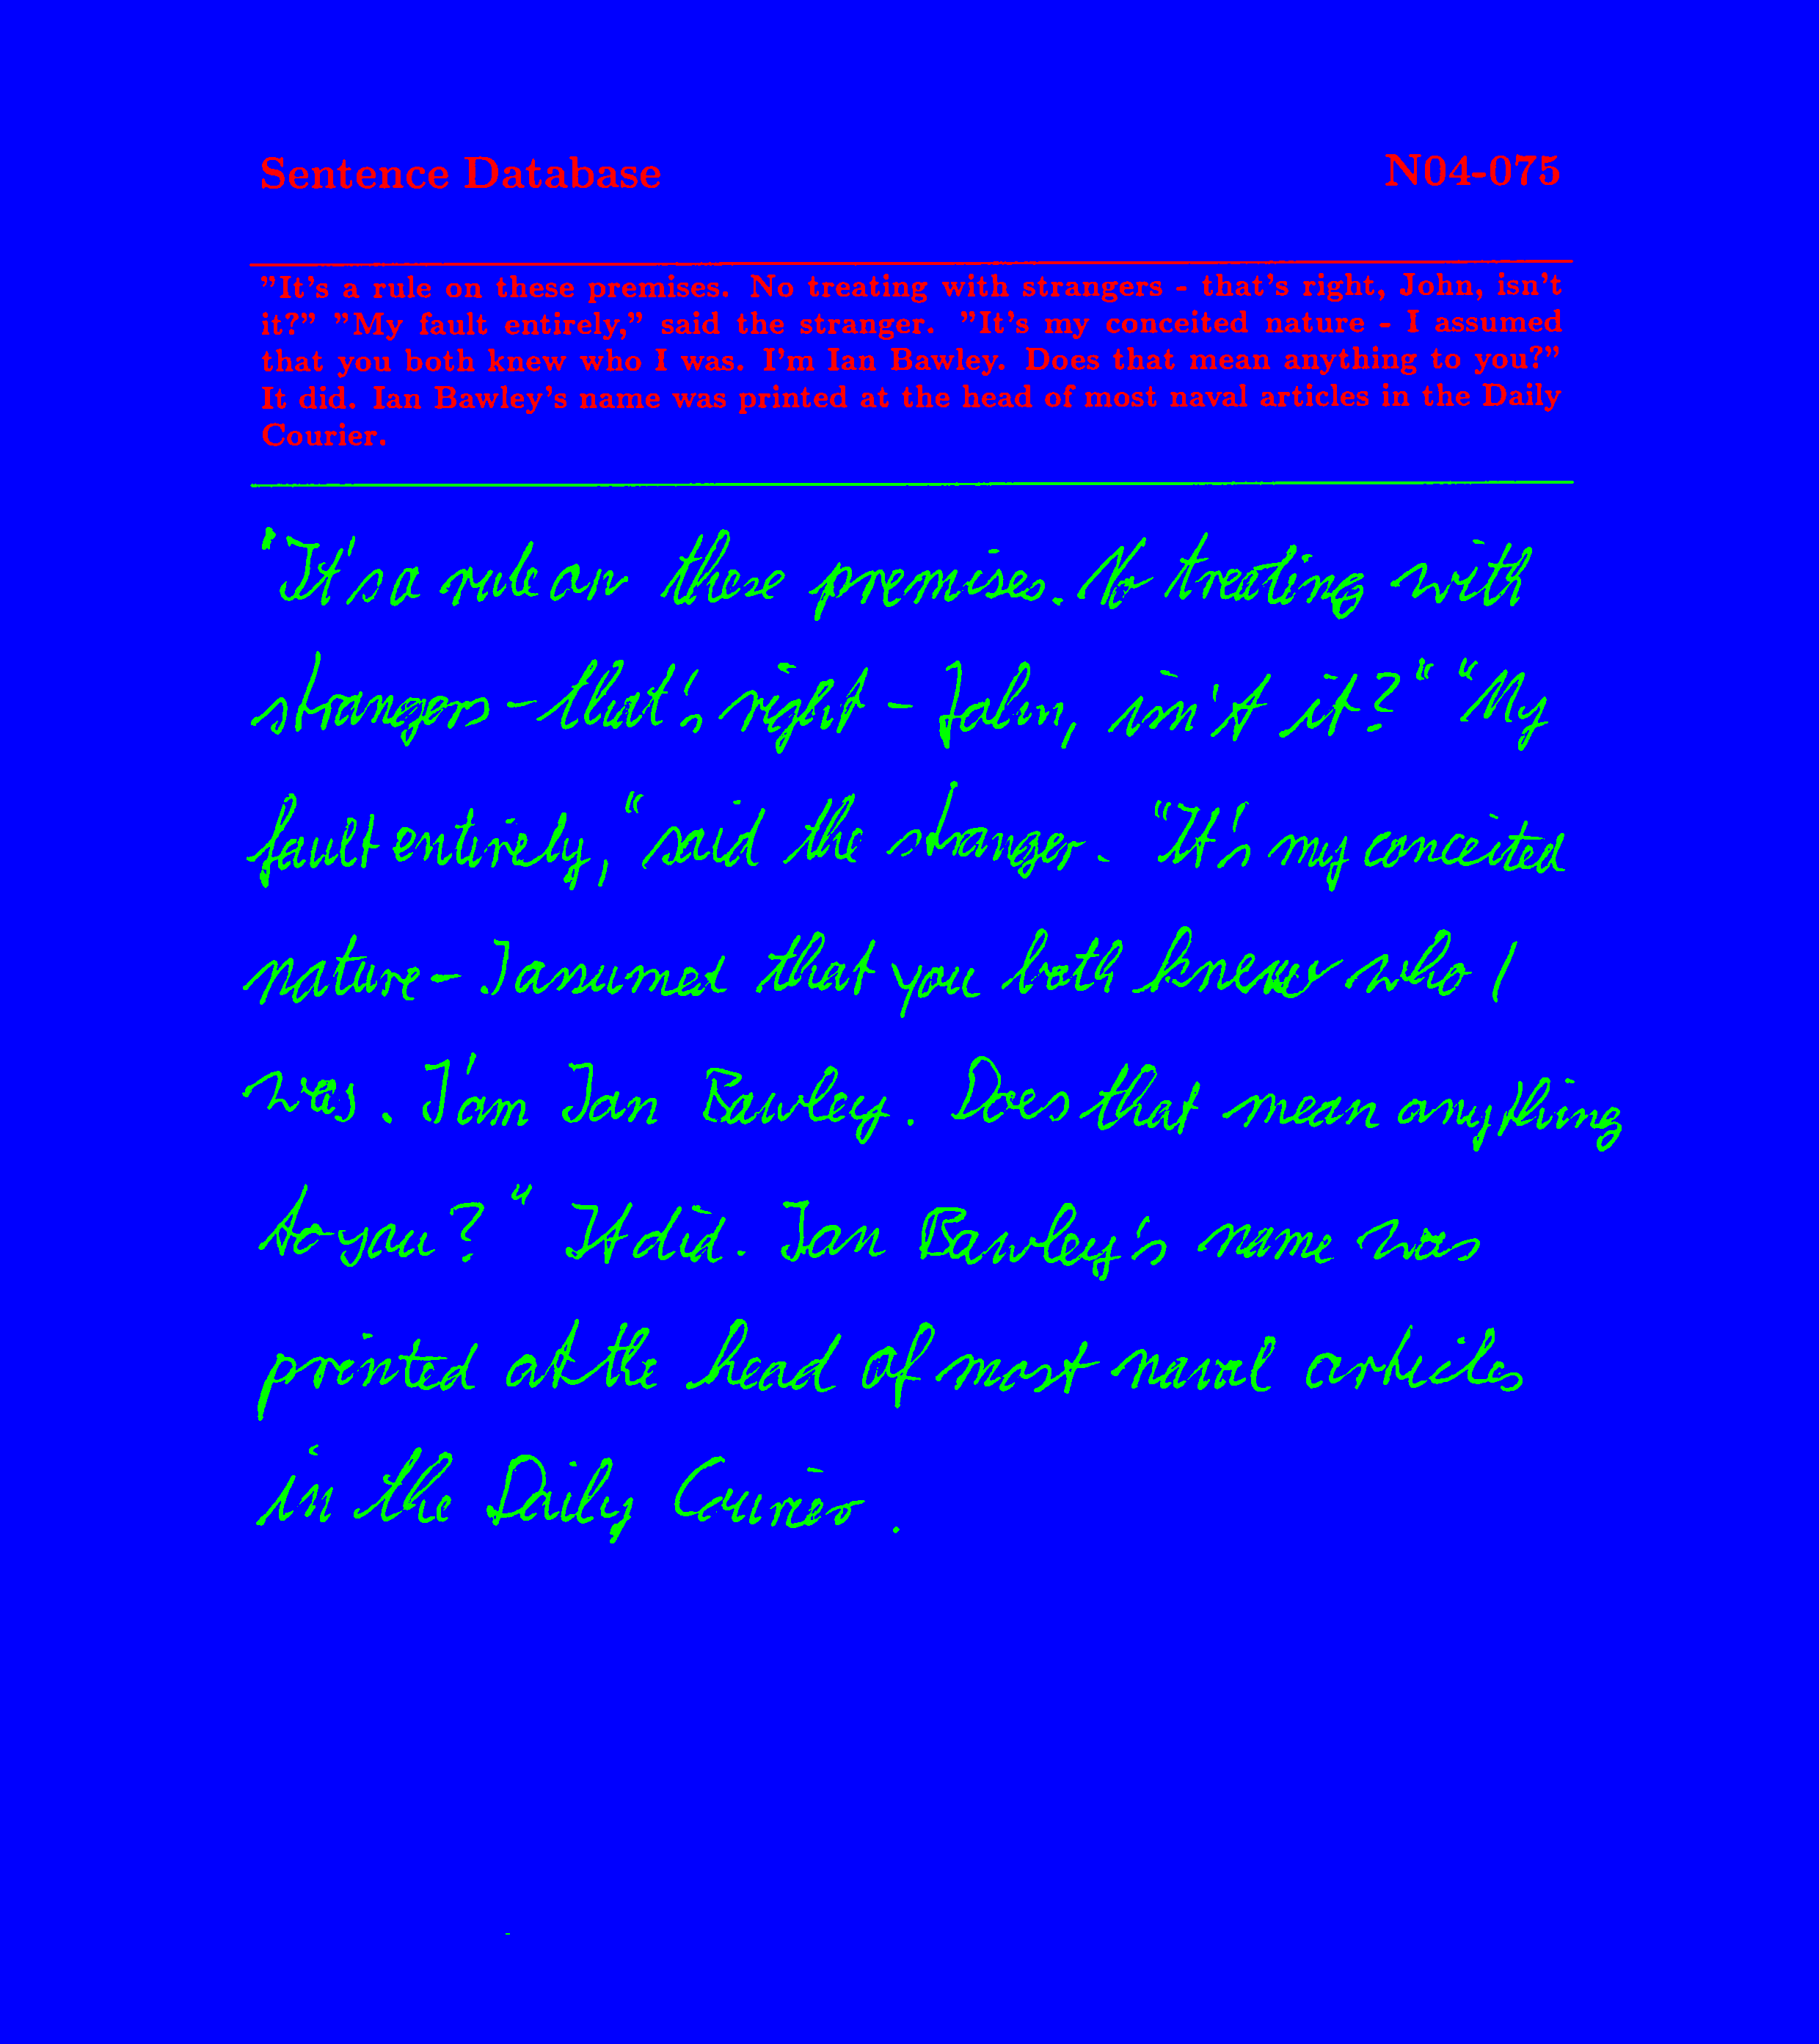 Sentence Database N04-075
"It's a rule on these premises. No treating with strangers - that's right, John, isn't
it?" "My fault entirely," said the stranger. "It's my conceited nature - I assumed
that you both knew who I was. I'm Ian Bawley. Does that mean anything to you?"
It did. Ian Bawley's name was printed at the head of most naval articles in the Daily
Courier.
"It's a rule on these premises. No treating with
strangers - that's right - John, isn't it?" "My
fault entirely," said the stranger. "It's my conceited
nature - I assumed that you both knew who I
was. I'am Ian Bawley. Does that mean anything
to you?" It did. Ian Bawley's name was
printed at the head of most naval articles
in the Daily Courier.